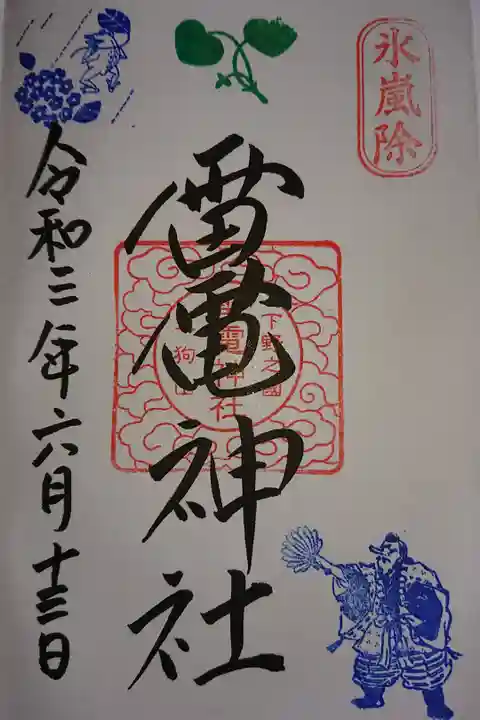 氷嵐除
雷電神社
下野之國
雷電神社
令和三年六月十三日